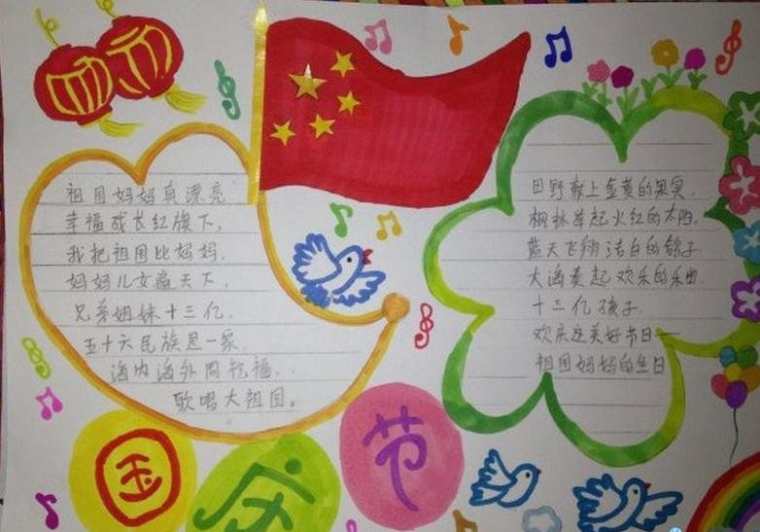 祖国妈妈真漂亮
幸福成长红旗下,
我把祖国比妈妈.
妈妈儿女遍天下.
兄弟姐妹十三亿.
五十六民族是一家.
海内海外同祝福.
歌唱大祖国。
田野献上金黄的果实.
枫林举起火红的太阳.
蓝天飞翔洁白的鸽子
大海奏起欢乐的乐曲
十三亿孩子
欢庆这美好节日—
祖国妈妈的生日
国庆节